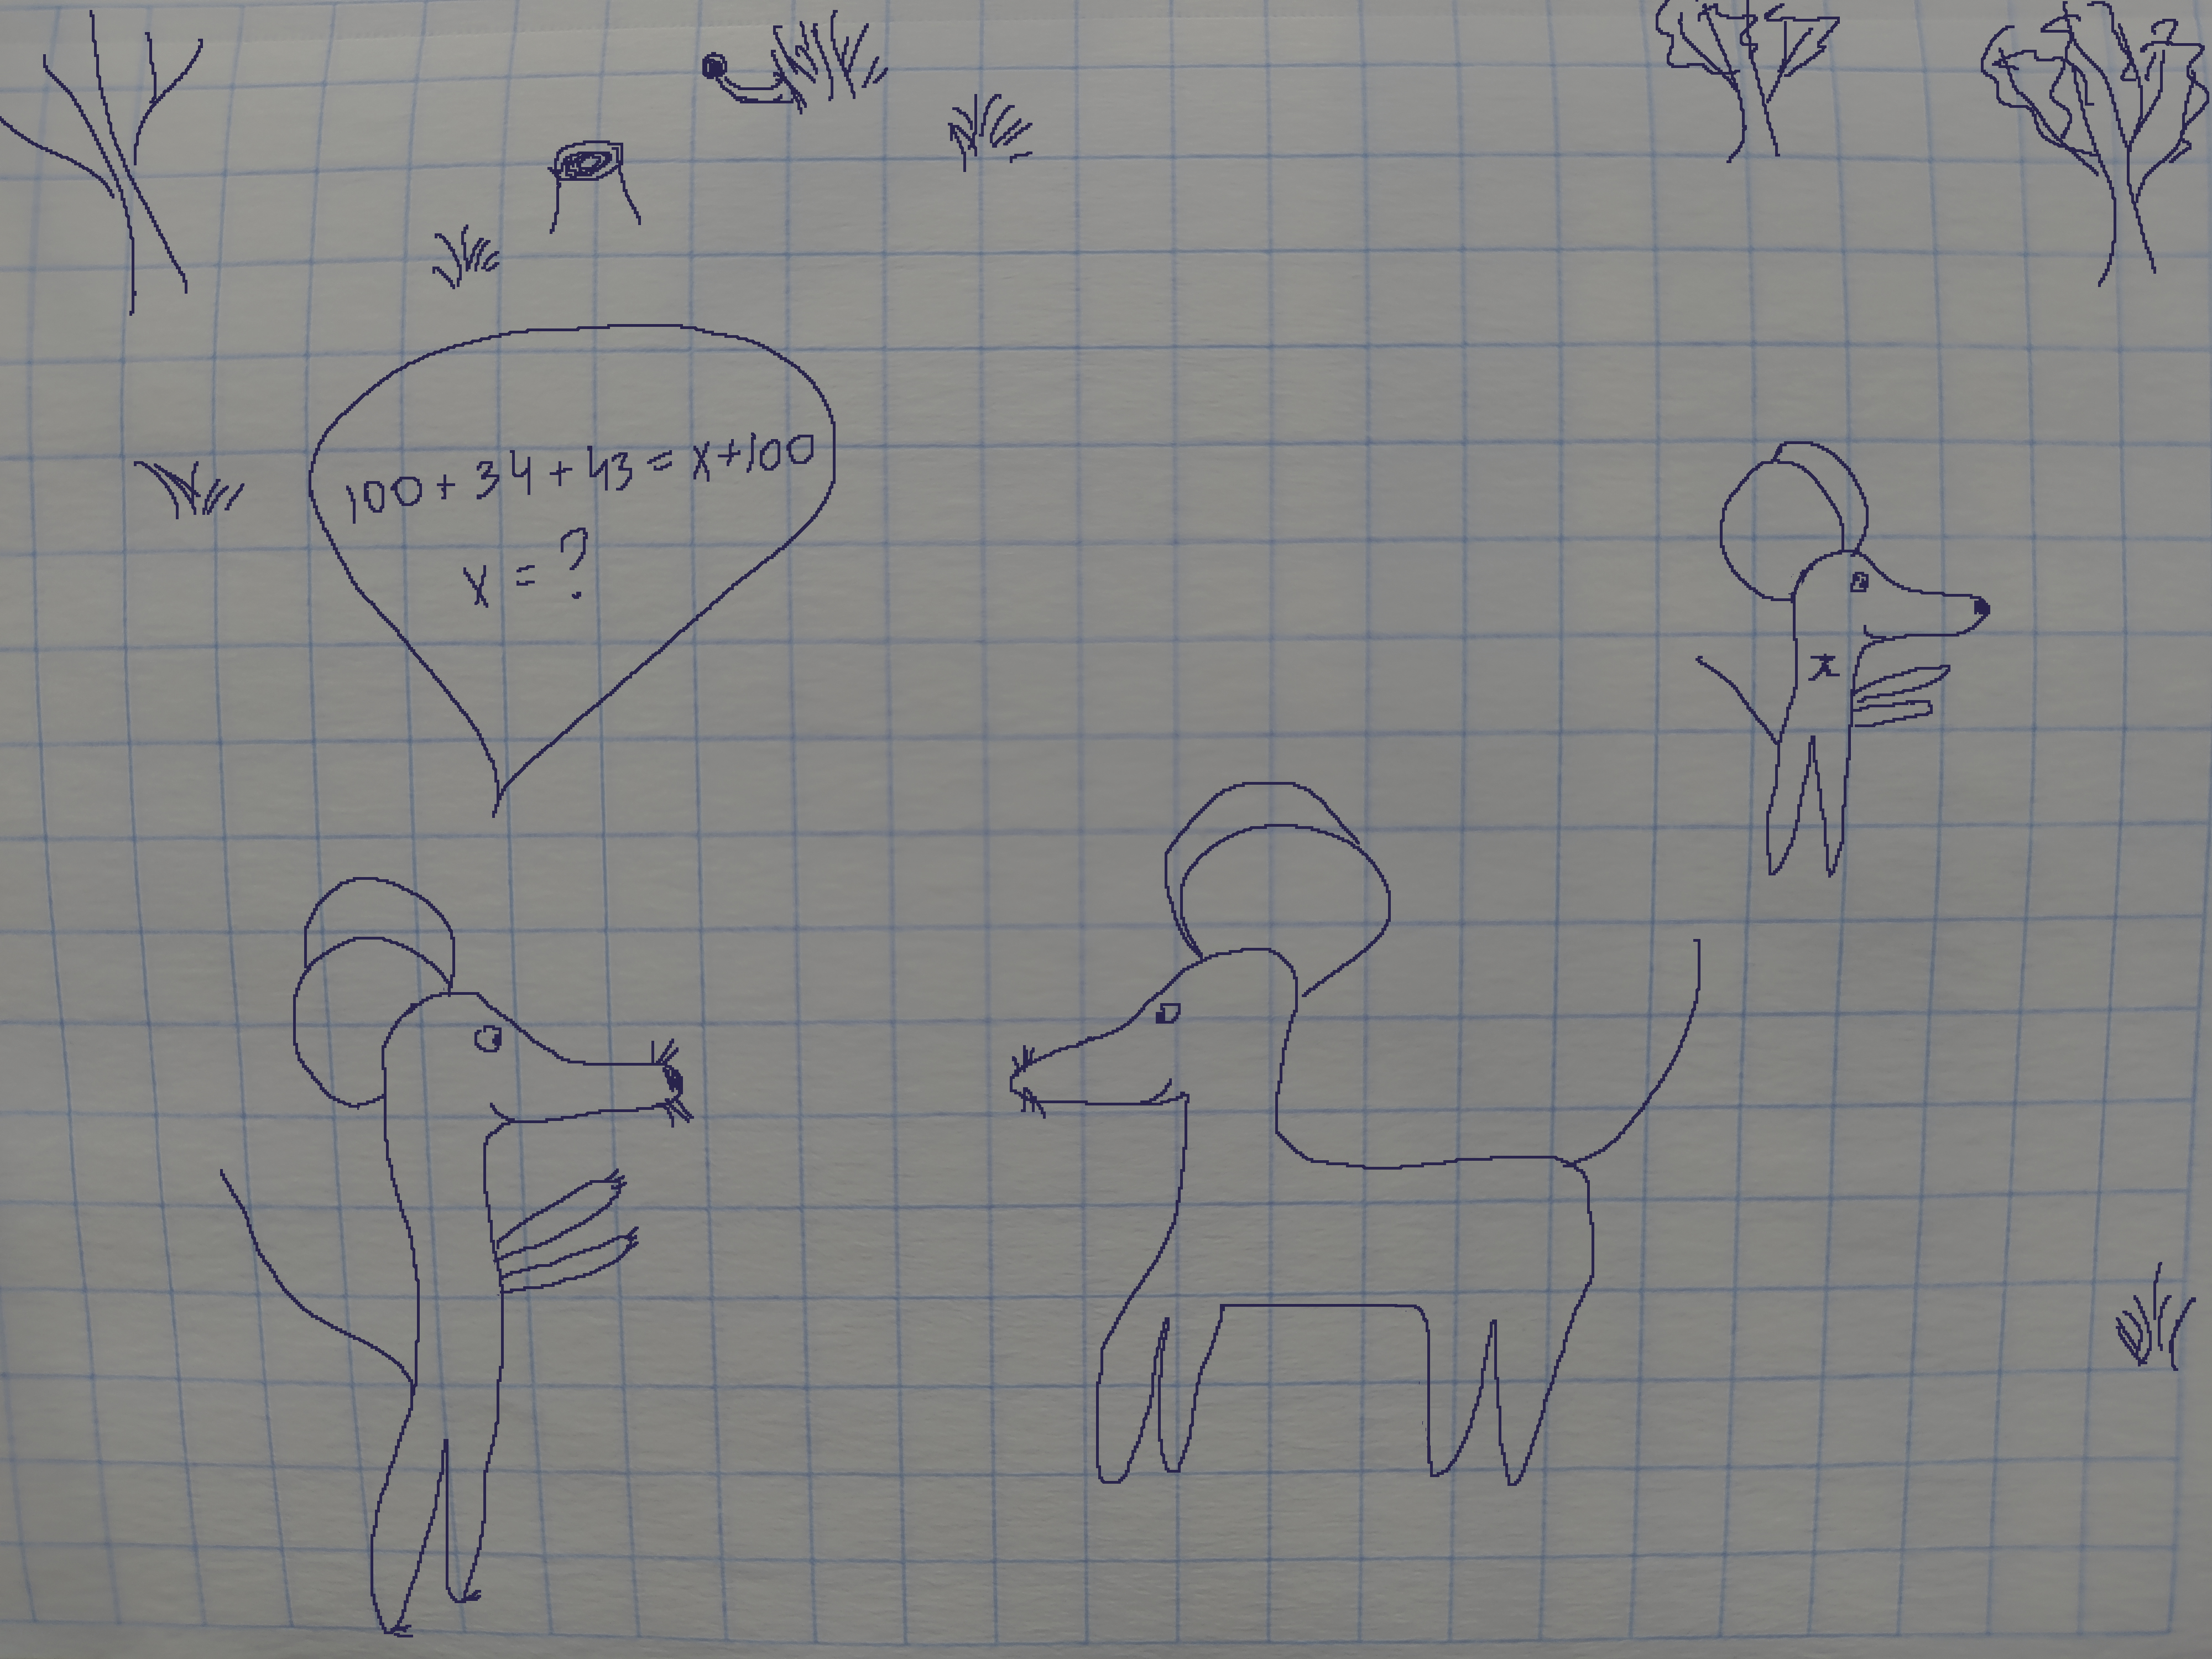 100 + 34 + 43 = x+100
x = ?